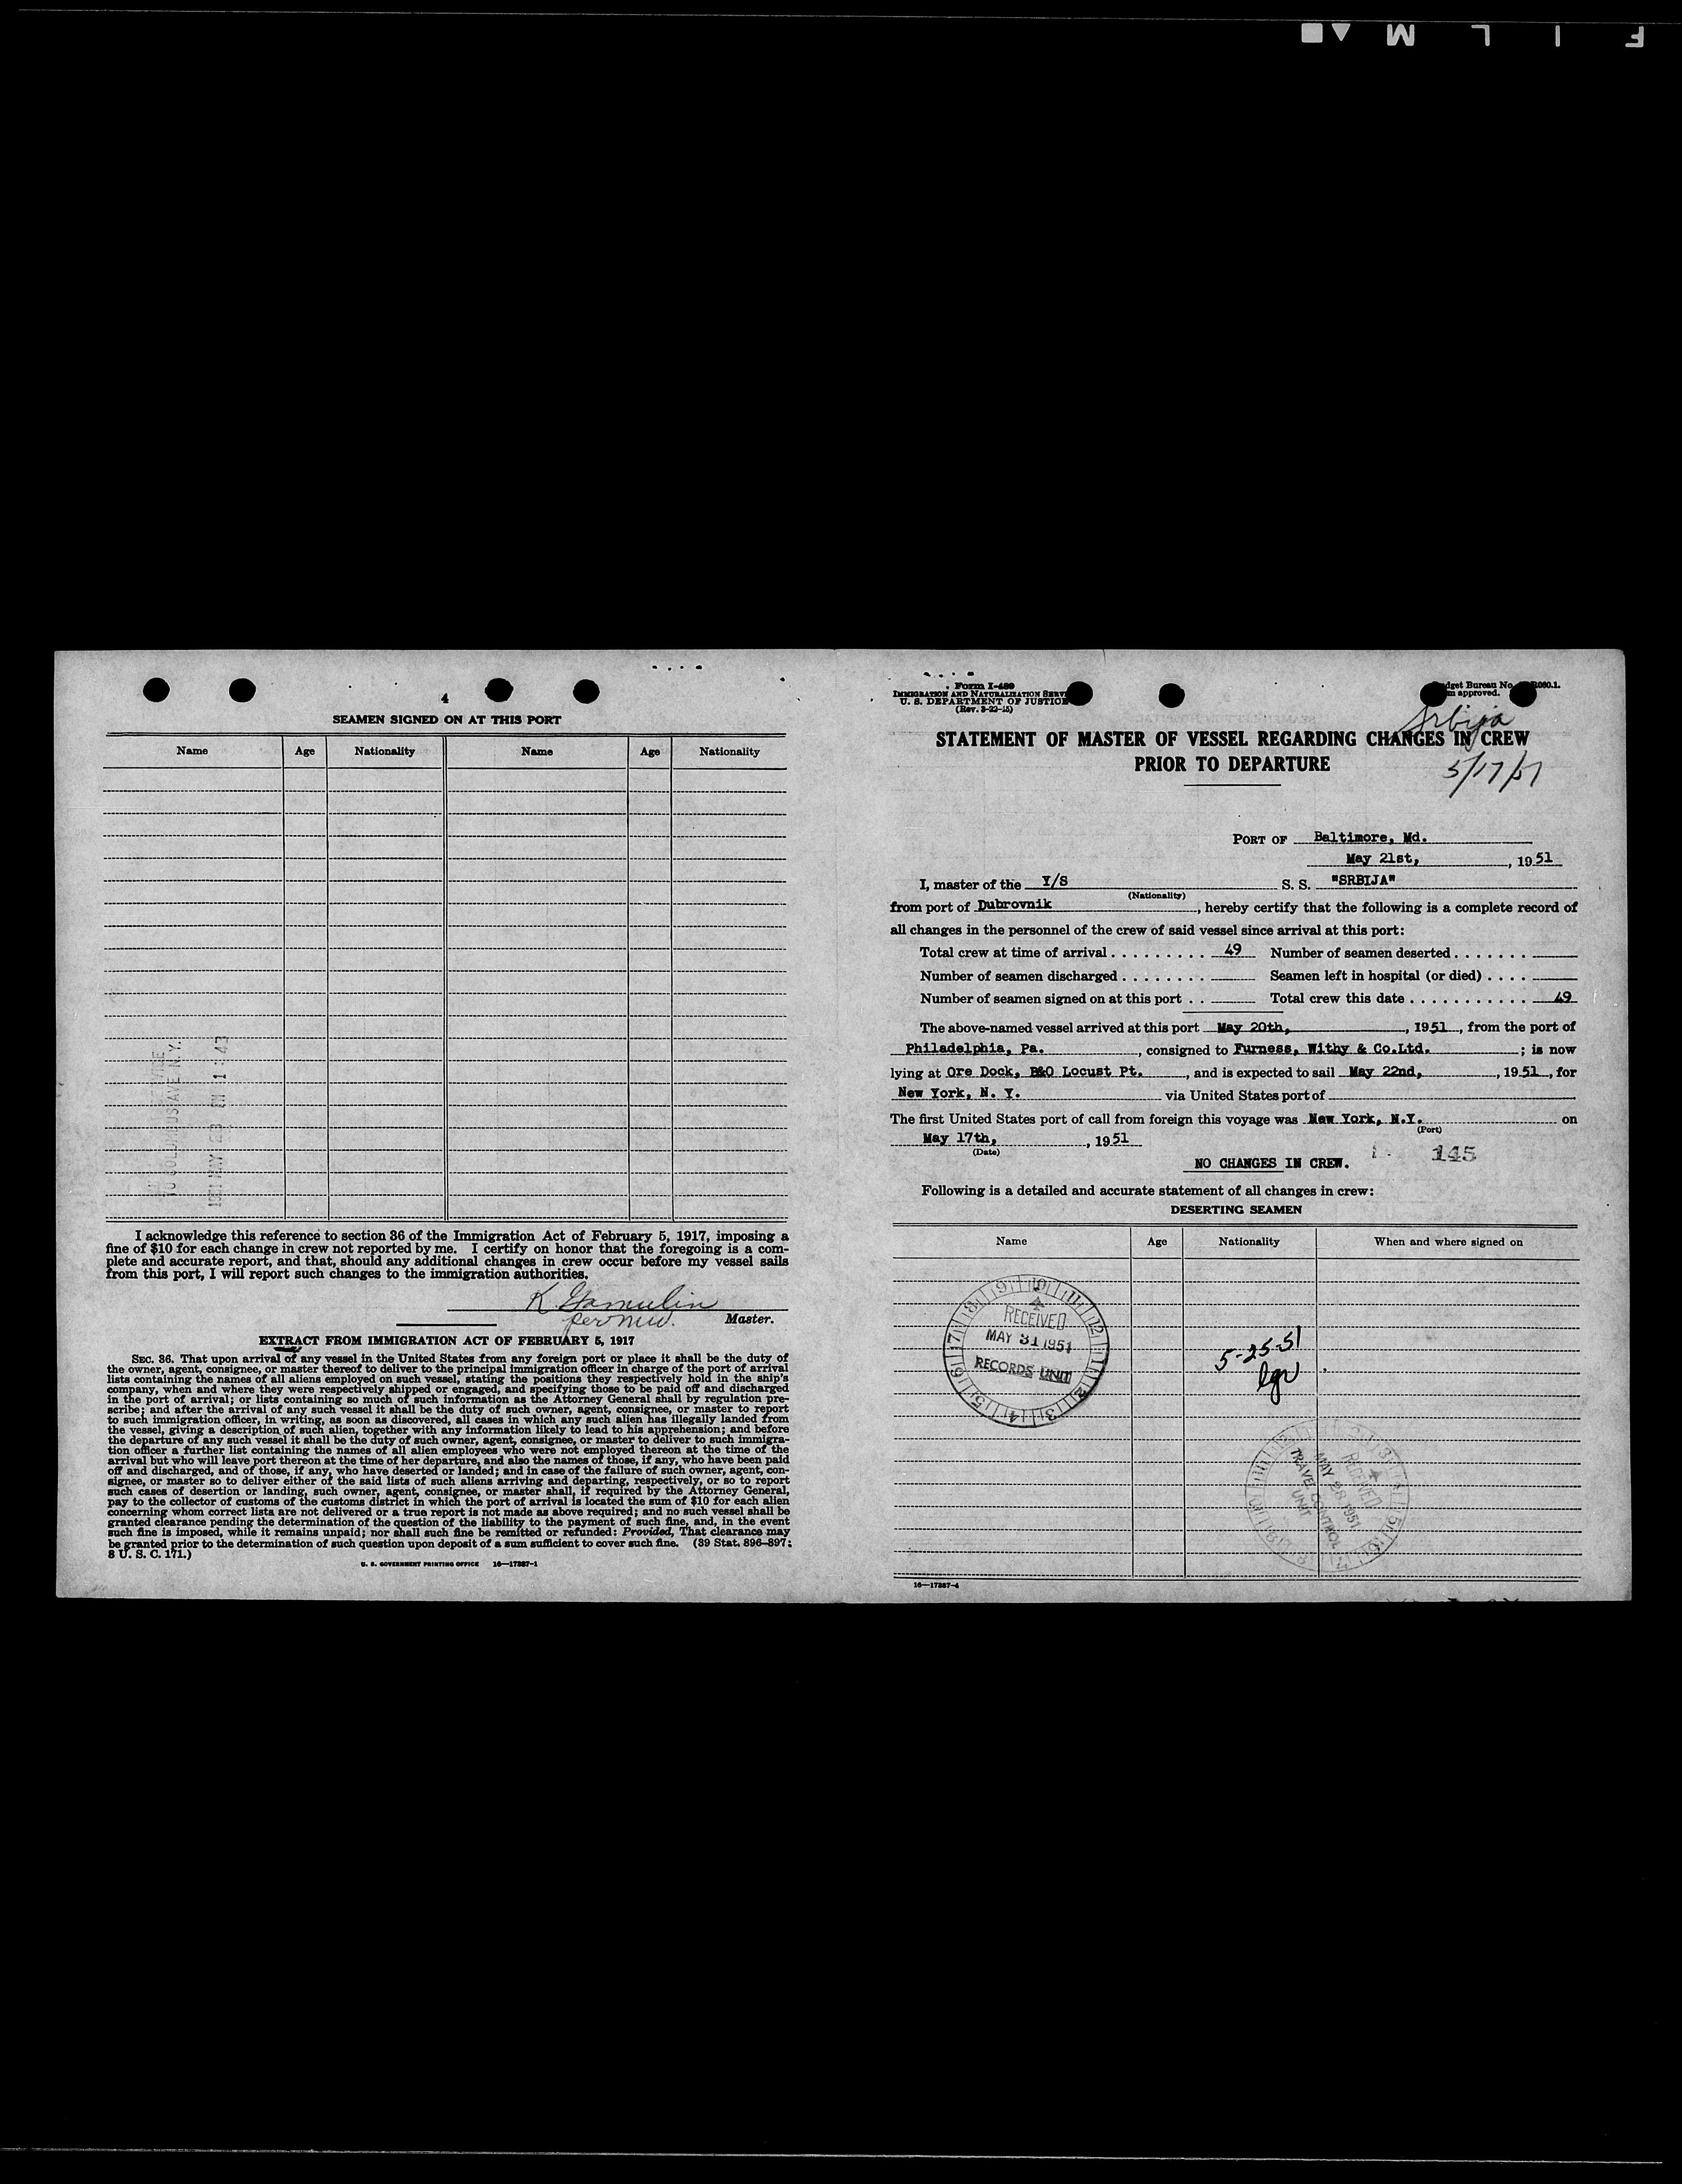 F I L M
4
SEAMEN SIGNED ON AT THIS PORT
Name Age Nationality Name Age Nationality
TO COLUMBUS AVE N.Y.
1951 MAY 23 PM 1:43
I acknowledge this reference to section 36 of the Immigration Act of February 5, 1917, imposing a
fine of $10 for each change in crew not reported by me. I certify on honor that the foregoing is a com-
plete and accurate report, and that, should any additional changes in crew occur before my vessel sails
from this port, I will report such changes to the immigration authorities.
K. Gamulin
per
Master.
EXTRACT FROM IMMIGRATION ACT OF FEBRUARY 5, 1917
SEC. 36. That upon arrival of any vessel in the United States from any foreign port or place it shall be the duty of
the owner, agent, consignee, or master thereof to deliver to the principal immigration officer in charge of the port of arrival
lists containing the names of all aliens employed on such vessel, stating the positions they respectively hold in the ship's
company, when and where they were respectively shipped or engaged, and specifying those to be paid off and discharged
in the port of arrival; or lists containing so much of such information as the Attorney General shall by regulation pre-
scribe; and after the arrival of any such vessel it shall be the duty of such owner, agent, consignee, or master to report
to such immigration officer, in writing, as soon as discovered, all cases in which any such alien has illegally landed from
the vessel, giving a description of such alien, together with any information likely to lead to his apprehension; and before
the departure of any such vessel it shall be the duty of such owner, agent, consignee, or master to deliver to such immigra-
tion officer a further list containing the names of all alien employees who were not employed thereon at the time of the
arrival but who will leave port thereon at the time of her departure, and also the names of those, if any, who have been paid
off and discharged, and of those, if any, who have deserted or landed; and in case of the failure of such owner, agent, con-
signee, or master so to deliver either of the said lists of such aliens arriving and departing, respectively, or so to report
such cases of desertion or landing, such owner, agent, consignee, or master shall, if required by the Attorney General,
pay to the collector of customs of the customs district in which the port of arrival is located the sum of $10 for each alien
concerning whom correct lists are not delivered or a true report is not made as above required; and no such vessel shall be
granted clearance pending the determination of the question of the liability to the payment of such fine, and, in the event
such fine is imposed, while it remains unpaid; nor shall such fine be remitted or refunded: Provided, That clearance may
be granted prior to the determination of such question upon deposit of a sum sufficient to cover such fine. (39 Stat. 896–897;
8 U. S. C. 171.)
U. S. GOVERNMENT PRINTING OFFICE 16—17887-1
Form I-489
IMMIGRATION AND NATURALIZATION SERV
U. S. DEPARTMENT OF JUSTICE
(Rev. 3-22-45)
dget Bureau No. R080.1.
m approved.
Srbija
STATEMENT OF MASTER OF VESSEL REGARDING CHANGES IN CREW
PRIOR TO DEPARTURE
5/17/51
PORT OF Baltimore, Md.
May 21st, , 1951
I, master of the Y/S S. S. "SRBIJA"
(Nationality)
from port of Dubrovnik , hereby certify that the following is a complete record of
all changes in the personnel of the crew of said vessel since arrival at this port:
Total crew at time of arrival . . . . . . . . . 49 Number of seamen deserted . . . . . . .
Number of seamen discharged . . . . . . . . Seamen left in hospital (or died) . . . .
Number of seamen signed on at this port . . Total crew this date . . . . . . . . . . . 49
The above-named vessel arrived at this port May 20th, , 1951 , from the port of
Philadelphia, Pa. , consigned to Furness, Withy & Co.Ltd. ; is now
lying at Ore Dock, B&O Locust Pt. , and is expected to sail May 22nd, , 1951 , for
New York, N. Y. via United States port of
The first United States port of call from foreign this voyage was New York, N.Y. on
(Port)
May 17th, , 1951
(Date)
NO CHANGES IN CREW. 145
Following is a detailed and accurate statement of all changes in crew:
DESERTING SEAMEN
Name Age Nationality When and where signed on
RECEIVED
MAY 31 1951
RECORDS UNIT
5-25-51
RECEIVED
MAY 28 1951
TRAVEL CONTROL
UNIT
16—17887-4